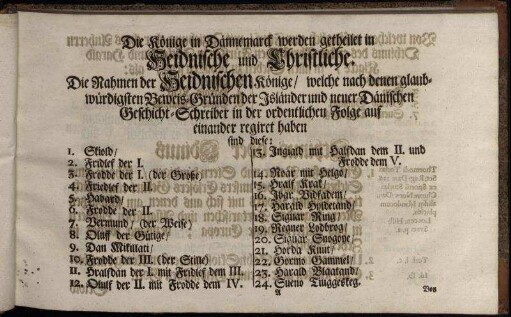 Die Könige in Dännemarck werden getheilet in
Heidnische und Christliche.
Die Nahmen der Heidnischen Könige / welche nach denen glaub-
würdigsten Beweis-Gründen der Isländer und neuer Dänischen
Geschicht-Schreiber in der ordentlichen Folge auf
einander regiret haben
sind diese:
1. Skiold /
2. Fridlef der I.
3. Frodde der I. (der Große)
4. Fridlef der II.
5. Havard /
6. Frodde der II.
7. Vermund / (der Weise)
8. Olaff der Gütige /
9. Dan Mikillati /
10. Frodde der III. (der Stille)
11. Hralfdan der I. mit Fridlef dem III.
12. Oluf der II. mit Frodde dem IV.
13. Ingiald mit Halfdan dem II. und
Frodde dem V.
14. Roär mit Helgo /
15. Hralf Krak /
16. Ivar Vidfadem /
17. Harald Hyldetand /
18. Siguar Ring /
19. Regner Lodbrog /
20. Siguar Snogöye /
21. Horda Knut /
22. Gormo Gammel /
23. Harald Blaatand /
24. Sueno Tiuggeskeg.
A
Von